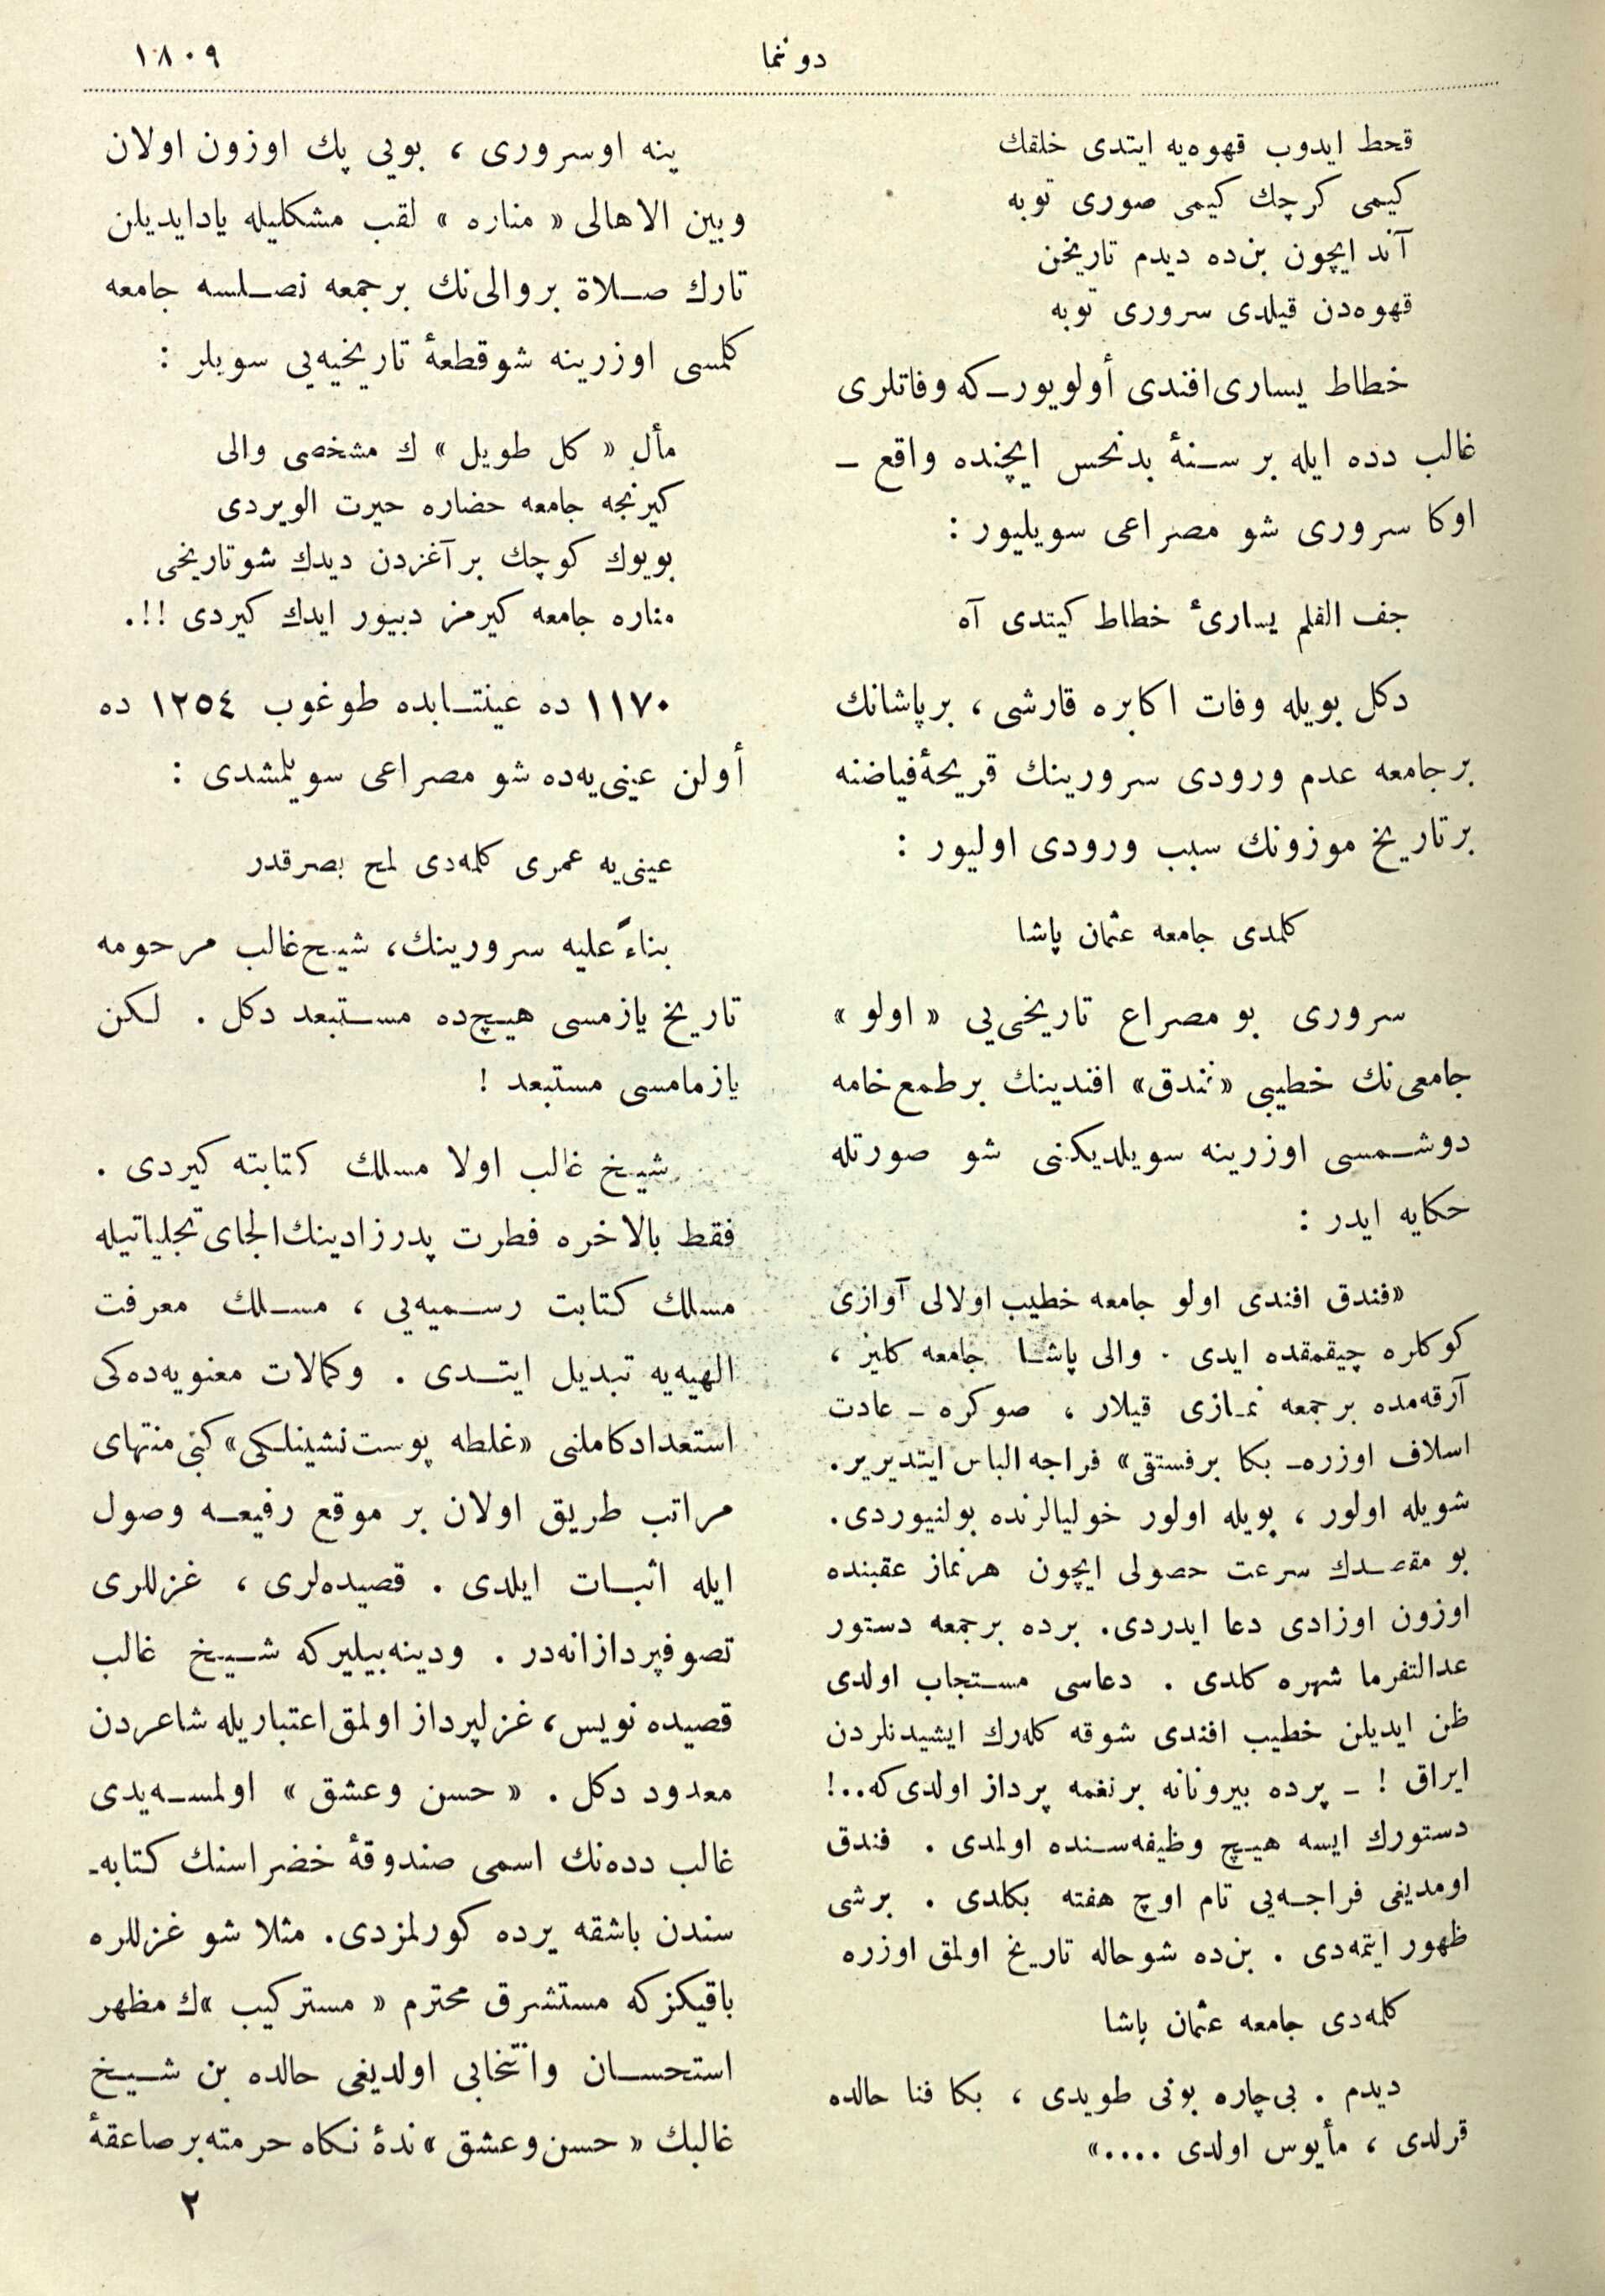 دوننما
١٨٠٩
قحط ایدوب قهوه‌یه ایتدی خلقك
كیمی كرچك كیمی صوری توبه
آند ایچون بن‌ده دیدم تاریخن
قهوه‌دن قیلدی سروری توبه
خطاط یساری‌افندی أولویور ــ كه وفاتلری
غالب دده ایله بر سـنهٔ بدنحس ایچنده واقع ــ
اوكا سروری شو مصراعی سویلیور :
جف القلم یساریٔ خطاط كیتدی آه
دكل بویله وفات اكابره قارشی ، برپاشانك
برجامعه عدم ورودی سرورینك قریحهٔ‌فیاضنه
برتاریخ موزونك سبب ورودی اولیور :
كلمدی جامعه عثمان پاشا
سروری بو مصراع تاریخی‌یی « اولو »
جامعی‌نك خطیبی « فندق» افندینك برطمع‌خامه
دوشـمسی اوزرینه سویلدیكنی شو صورتله
حكایه ایدر :
«فندق افندی اولو جامعه خطیب اولالی آوازی
كوكلره چیقمقده ایدی . والی پاشـا جامعه كلیز ،
آرقه‌مده برجمعه نمـازی قیلار ، صوكره ــ عادت
اسلاف اوزره ــ بكا برفستقی» فراجه الباس ایتدیریر.
شویله اولور ، بویله اولور خولیالرنده بولنیوردی.
بو مقصـدك سرعت حصولی ایچون هرنماز عقبنده
اوزون اوزادی دعا ایدردی. برده برجمعه دستور
عدالتفرما شهره كلدی . دعاسی مسـتجاب اولدی
ظن ایدیلن خطیب افندی شوقه كله‌رك ایشیدنلردن
ایراق ! ــ پرده بیرونانه برنغمه پرداز اولدی‌كه..!
دستورك ایسه هیـچ وظیفه‌سـنده اولمدی . فندق
اومدیغی فراجـه‌یی تام اوچ هفته بكلدی . برشی
ظهور ایتمه‌دی . بن‌ده شوحاله تاریخ اولمق اوزره
كلمه‌دی جامعه عثمان پاشا
دیدم . بی‌چاره بونی طویدی ، بكا فنا حالده
قرلدی ، مأیوس اولدی ....»
ینه اوسروری ، بویی پك اوزون اولان
وبین الاهالی « مناره » لقب مشكلیله یادایدیلن
تارك صـلاة بروالی‌نك برجمعه نصـلسه جامعه
كلمسی اوزرینه شوقطعهٔ تاریخیه‌یی سویلر :
مأل « كل طویل » ك مشخصی والی
كیرنجه جامعه حضاره حیرت الویردی
بویوك كوچك برآغزدن دیدك شوتاریخی
مناره جامعه كیرمز دییور ایدك كیردی !!.
١١٧٠ ده عینتـابده طوغوب ١٢٥٤ ده
أولن عینی‌یه‌ده شو مصراعی سویلمشدی :
عینی‌یه عمری كلمه‌دی لمح بصرقدر
بناءً علیه سرورینك، شیـخ‌غالب مرحومه
تاریخ یازمسی هیـچ‌ده مسـتبعد دكل . لـكن
یازمامسی مستبعد !
شیـخ غالب اولا مسلك كتابته كیردی .
فقط بالاخره فطرت پدرزادینك‌الجای تجلیاتیله
مسلك كتابت رسـمیه‌یی ، مسـلك معرفت
الهیه‌یه تبدیل ایتـدی . وكمالات معنویه‌ده‌كی
استعدادكاملنی «غلطه پوست‌نشینلـكی» كبی منتهای
مراتب طریق اولان بر موقع رفیعـه وصول
ایله اثبـات ایلدی . قصیده‌لری ، غزللری
تصوفپردازانه‌در . ودینه‌بیلیركه شـیـخ غالب
قصیده نویس، غزلپرداز اولمق‌اعتباریله شاعردن
معدود دكل . « حسن وعشق » اولمسـه‌یدی
غالب دده‌نك اسمی صندوقهٔ خضراسنك كتابه‌ـ
سندن باشقه یرده كورلمزدی. مثلا شو غزللره
باقیكزكه مستشرق محترم « مستر كیب »ك مظهر
استحسـان وانتخابی اولدیغی حالده بن شـیـخ
غالبك « حسن وعشق » ندهٔ نكاه حرمته برصاعقهٔ
٢